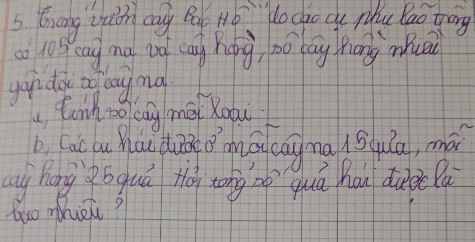 5. Trong vườn cây Bác Hồ do các cụ phụ lão trồng
có 105 cây na và cây hồng, số cây hồng nhiều
gấp đôi số cây na.
a, Tính số cây mỗi loại.
b, Các cụ hái được ở mỗi cây na 15 quả, mỗi
cây hồng 25 quả Hỏi tổng số quả hái được là
bao nhiêu?